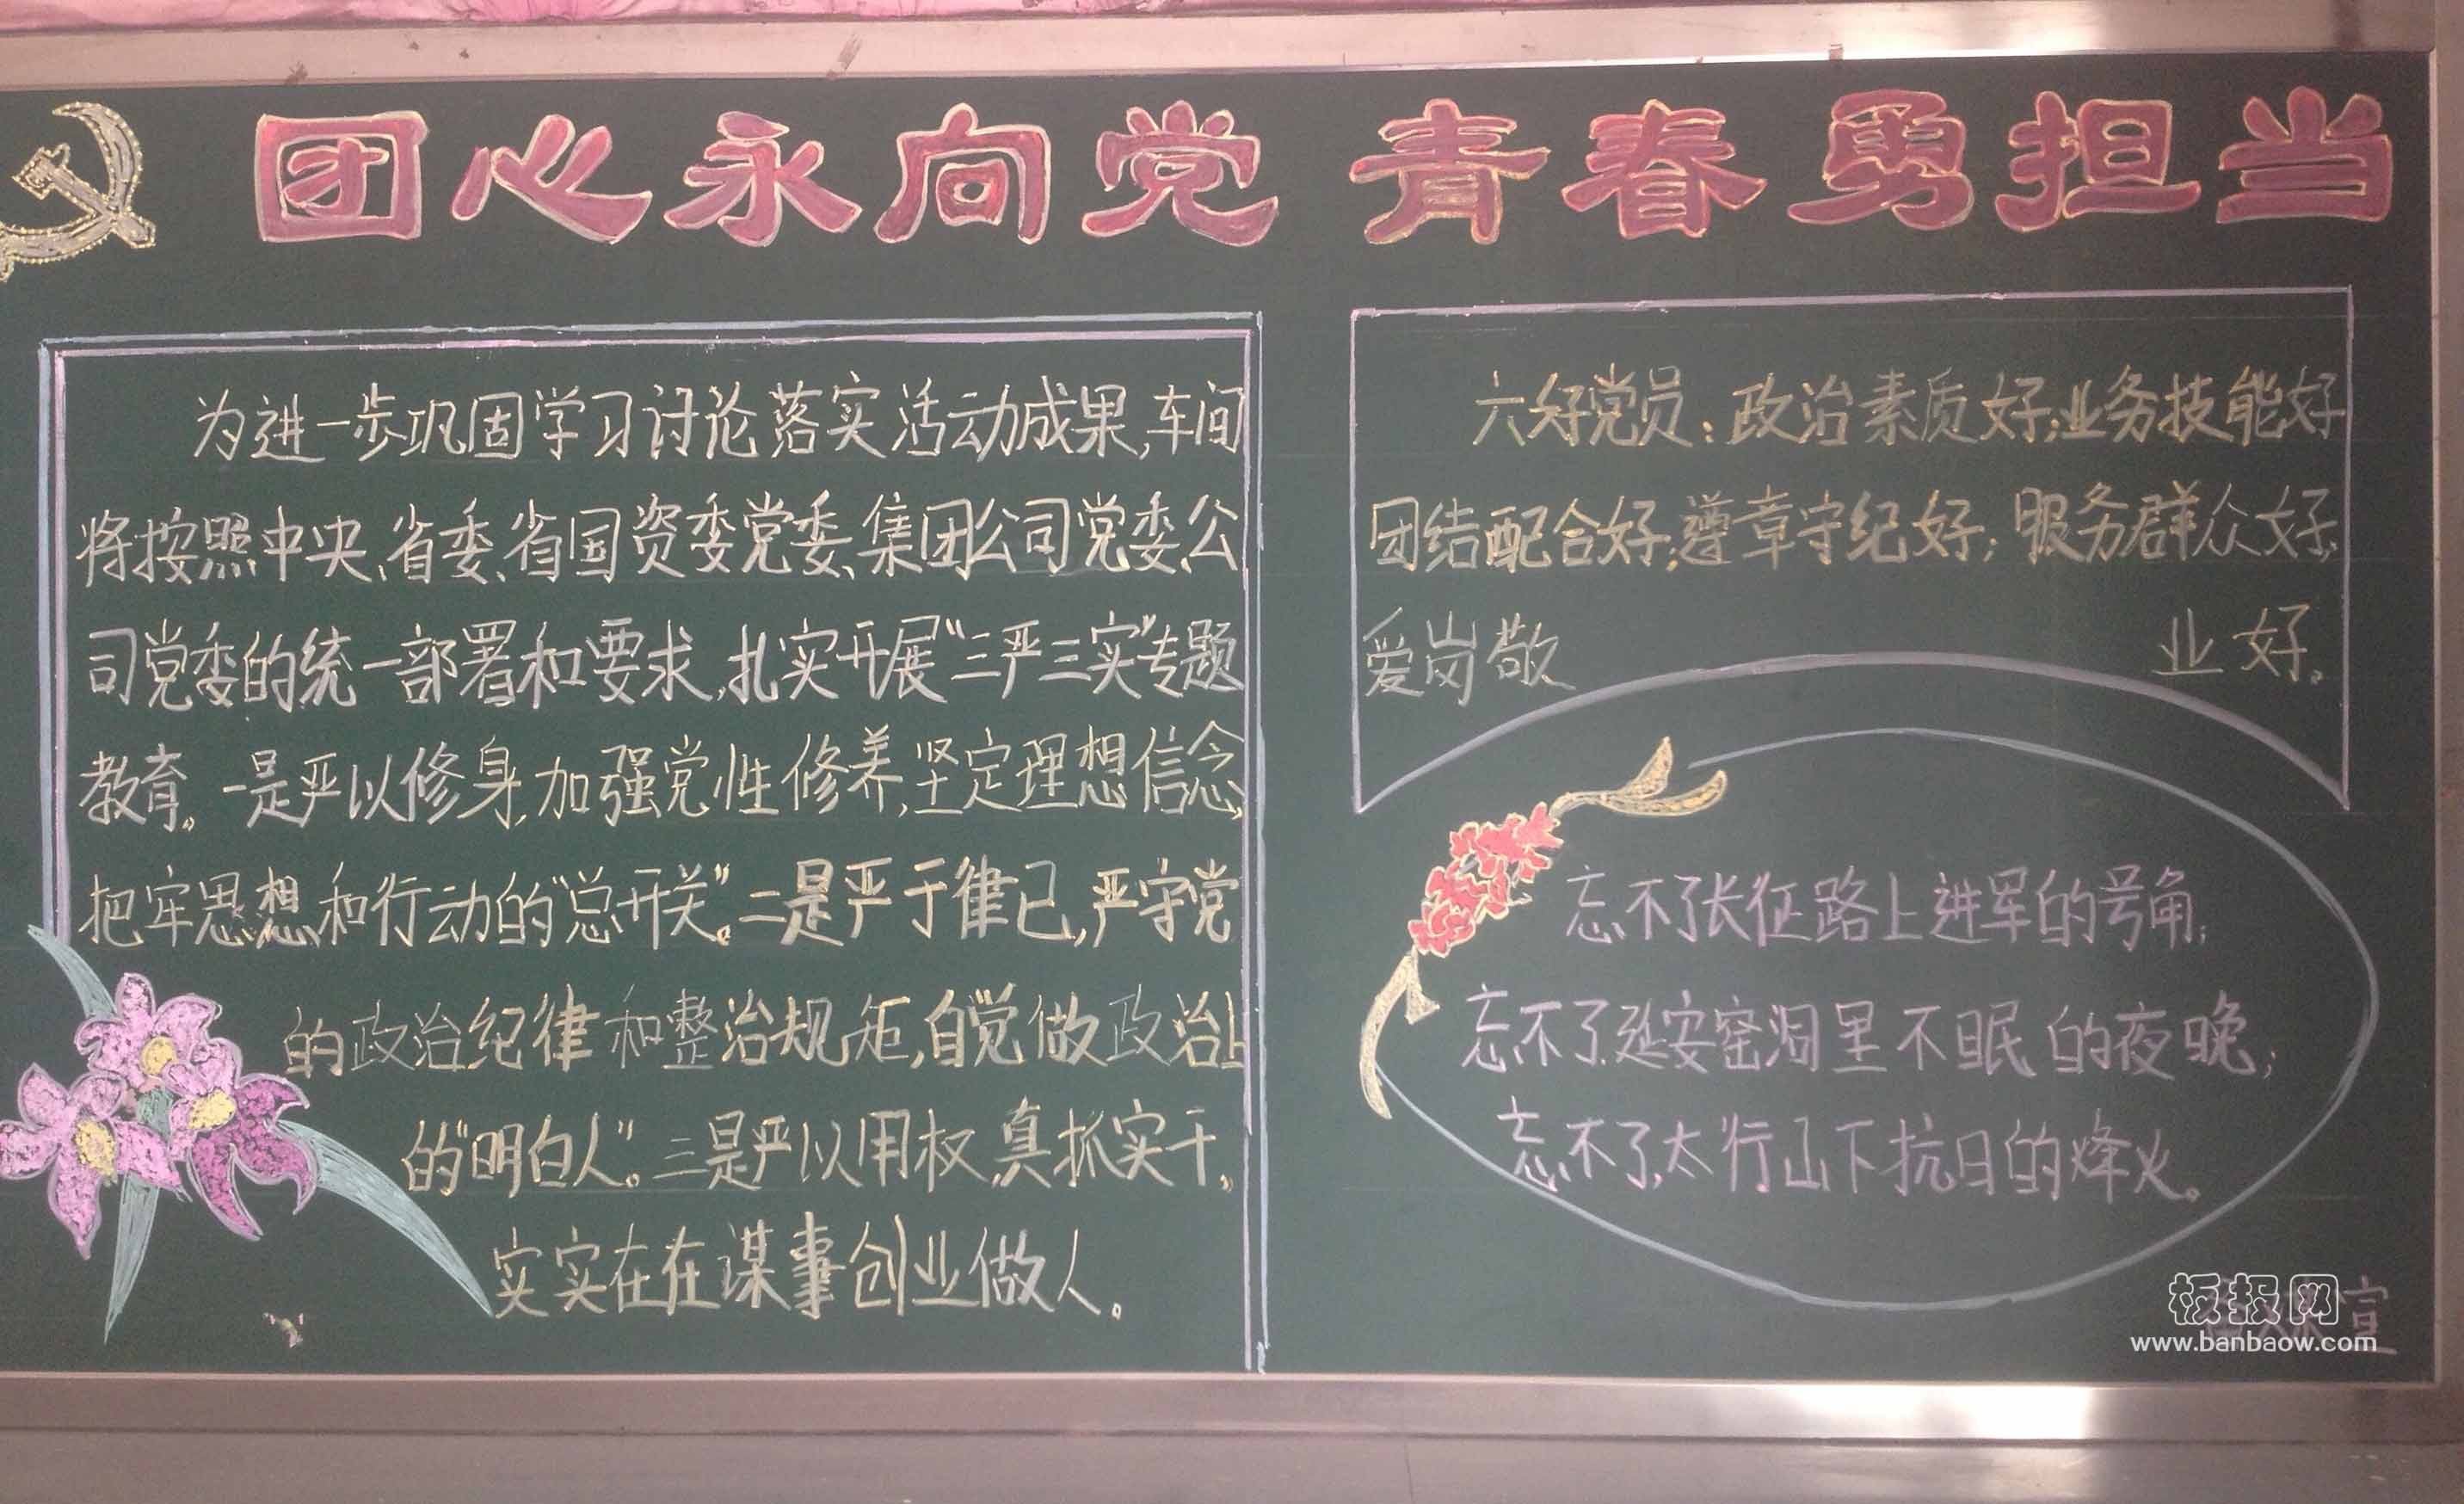 团心永向党 青春勇担当
为进一步巩固学习讨论落实活动成果,车间
将按照中央、省委、省国资委党委、集团公司党委、公
司党委的统一部署和要求,扎实开展“三严三实”专题
教育。一是严以修身,加强党性修养,坚定理想信念,
把牢思想和行动的“总开关”。二是严于律己,严守党
的政治纪律和整治规矩,自觉做政治上
的“明白人”。三是严以用权,真抓实干,
实实在在谋事创业做人。
六好党员:政治素质好;业务技能好
团结配合好;遵章守纪好;服务群众好;
爱岗敬 业好。
忘不了长征路上进军的号角;
忘不了延安窑洞里不眠的夜晚;
忘不了太行山下抗日的烽火。
宣
板报网
www.banbaow.com